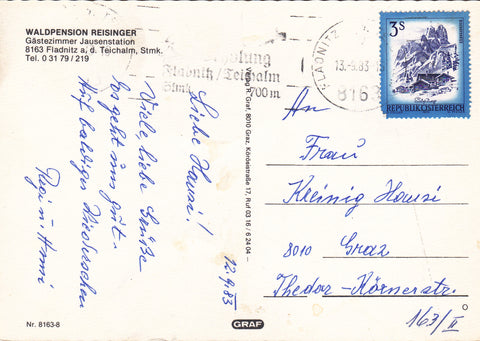 WALDPENSION REISINGER
Gästezimmer Jausenstation
8163 Fladnitz a. d. Teichalm, Stmk.
Tel. 0 31 79 / 219
Erholung
Fladnitz/Teichalm
Stmk. 700 m
FLADNITZ
13.-9.83
8163
3s
REPUBLIK ÖSTERREICH
12.9.83
Liebe Hausi!
Viele, liebe Grüße
Es geht uns gut.
Auf baldiges Wiedersehen
Resi u. Hansi
Verlag R. Graf, 8010 Graz, Körösistraße 17, Ruf 03 16 / 6 24 04
An
Frau
Kleinig Hausi
8010 Graz
Theodor-Körnerstr.
163/II
Nr. 8163-8
GRAF